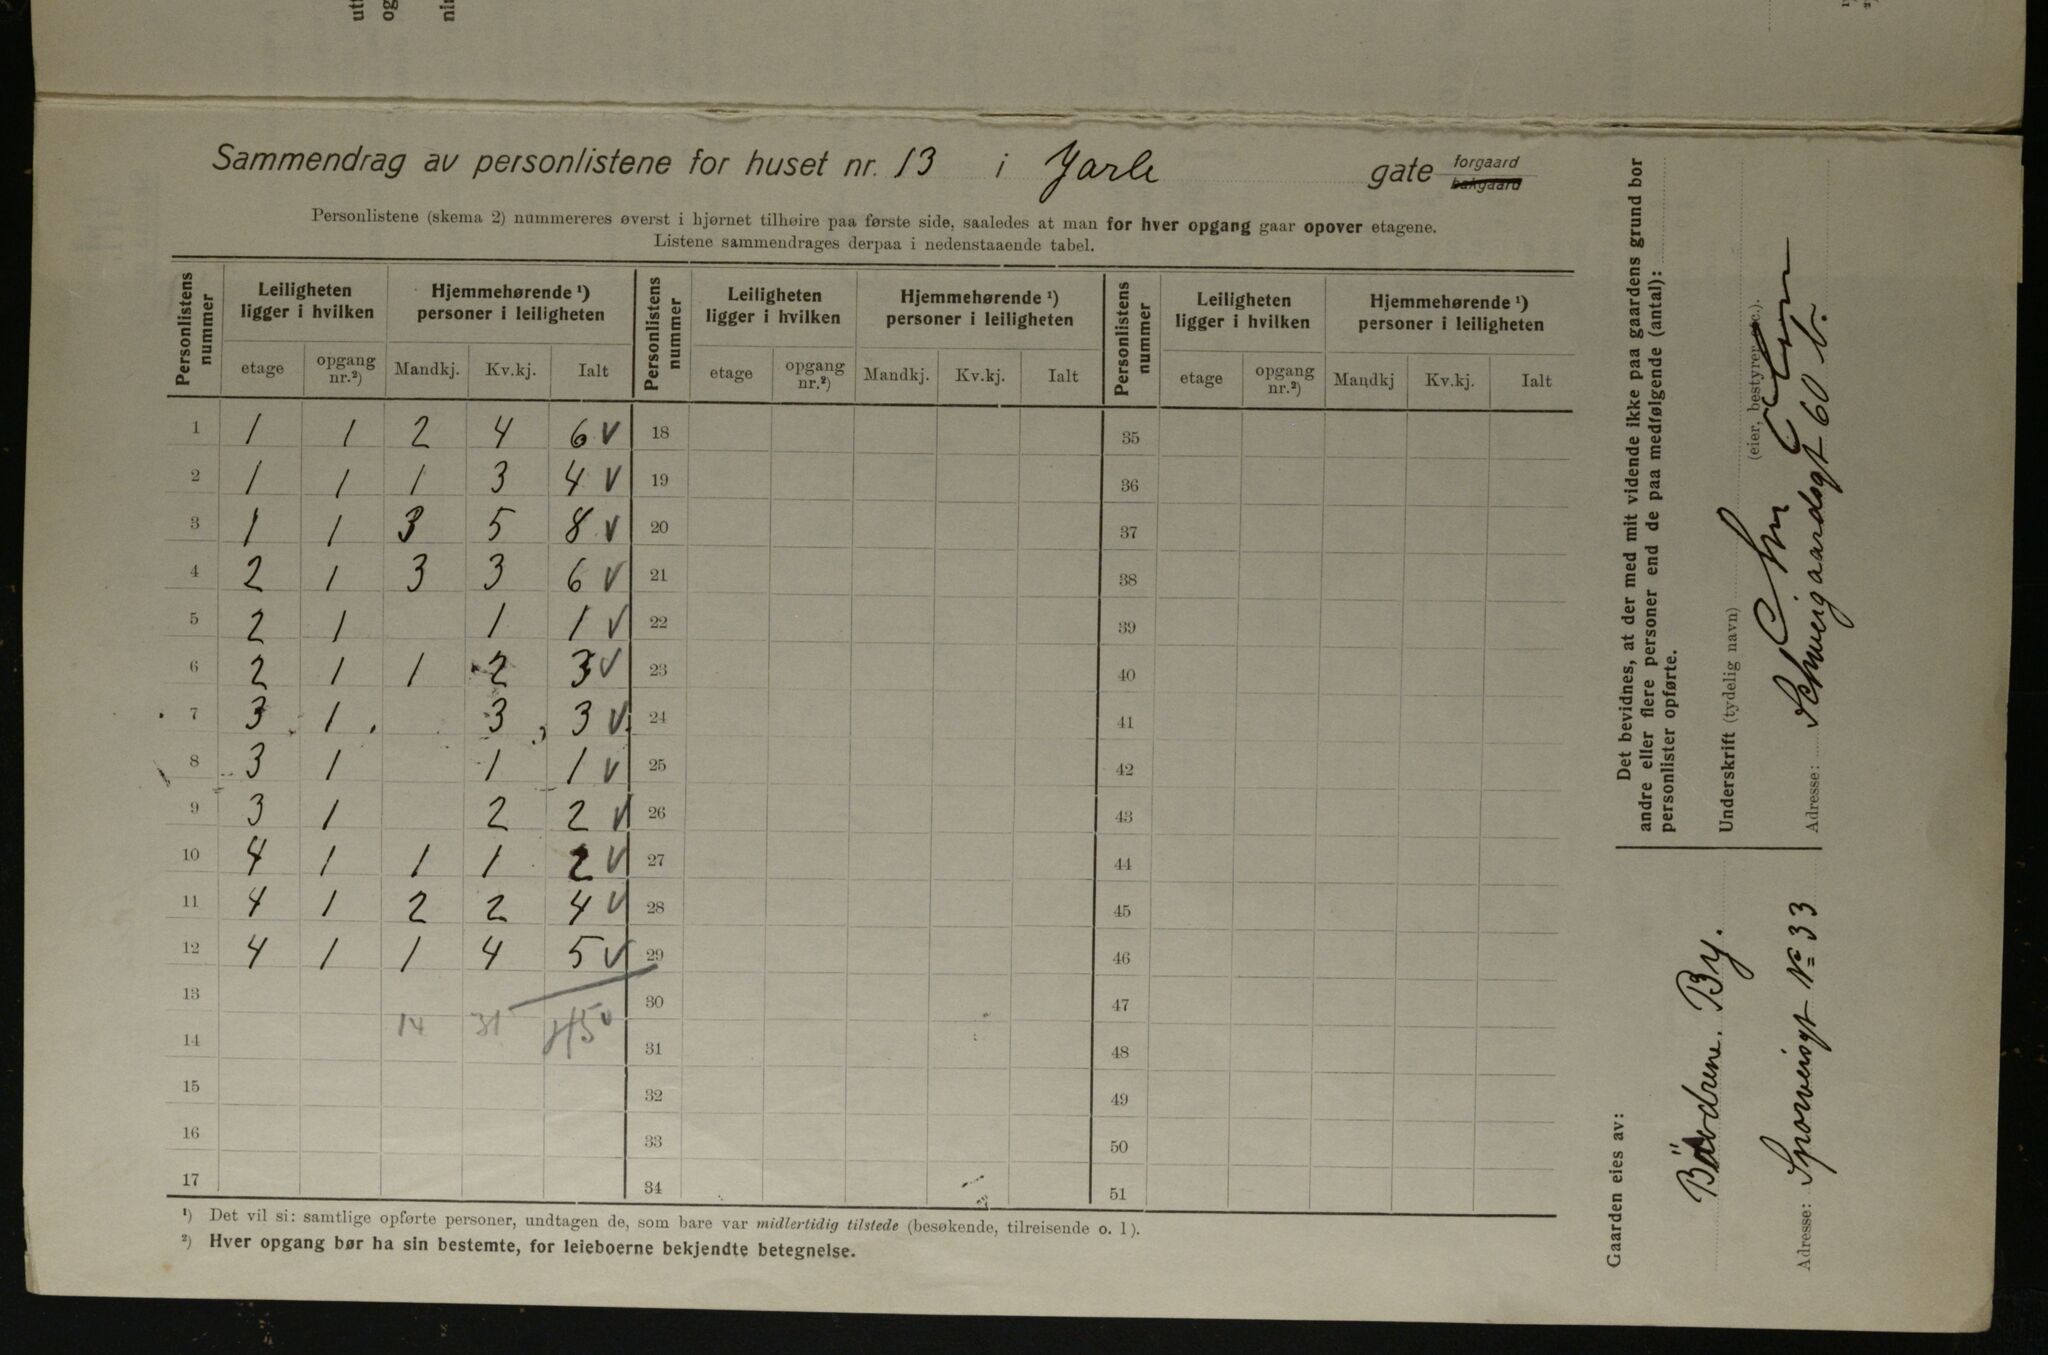 Sammendrag av personlistene for huset nr. 13 i Jarle gate forgaard bakgaard
Personlistene (skema 2) nummereres øverst i hjørnet tilhøire paa første side, saaledes at man for hver opgang gaar opover etagene.
Listene sammendrages derpaa i nedenstaaende tabel.
Personlistens nummer | Leiligheten ligger i hvilken | Hjemmehørende ¹) personer i leiligheten | Personlistens nummer | Leiligheten ligger i hvilken | Hjemmehørende ¹) personer i leiligheten | Personlistens nummer | Leiligheten ligger i hvilken | Hjemmehørende ¹) personer i leiligheten
etage | opgang nr.²) | Mandkj. | Kv.kj. | Ialt | etage | opgang nr.²) | Mandkj. | Kv.kj. | Ialt | etage | opgang nr.²) | Mandkj | Kv.kj. | Ialt
1 | 1 | 1 | 2 | 4 | 6 v | 18 | 35
2 | 1 | 1 | 1 | 3 | 4 v | 19 | 36
3 | 1 | 1 | 3 | 5 | 8 v | 20 | 37
4 | 2 | 1 | 3 | 3 | 6 v | 21 | 38
5 | 2 | 1 | | 1 | 1 v | 22 | 39
6 | 2 | 1 | 1 | 2 | 3 v | 23 | 40
7 | 3 | 1 | | 3 | 3 v | 24 | 41
8 | 3 | 1 | | 1 | 1 v | 25 | 42
9 | 3 | 1 | | 2 | 2 v | 26 | 43
10 | 4 | 1 | 1 | 1 | 2 v | 27 | 44
11 | 4 | 1 | 2 | 2 | 4 v | 28 | 45
12 | 4 | 1 | 1 | 4 | 5 v | 29 | 46
13 | 30 | 47
14 | | | 14 | 31 | 45 v | 31 | 48
15 | 32 | 49
16 | 33 | 50
17 | 34 | 51
¹) Det vil si: samtlige opførte personer, undtagen de, som bare var midlertidig tilstede (besøkende, tilreisende o. l).
²) Hver opgang bør ha sin bestemte, for leieboerne bekjendte betegnelse.
Det bevidnes, at der med mit vidende ikke paa gaardens grund bor
andre eller flere personer end de paa medfølgende (antal):
personlister opførte.
Underskrift (tydelig navn)
(eier, bestyrer etc.).
Adresse: Schweigaardsgt 60 b.
Gaarden eies av:
Brödrene By.
Adresse: Sporveisgt No 33